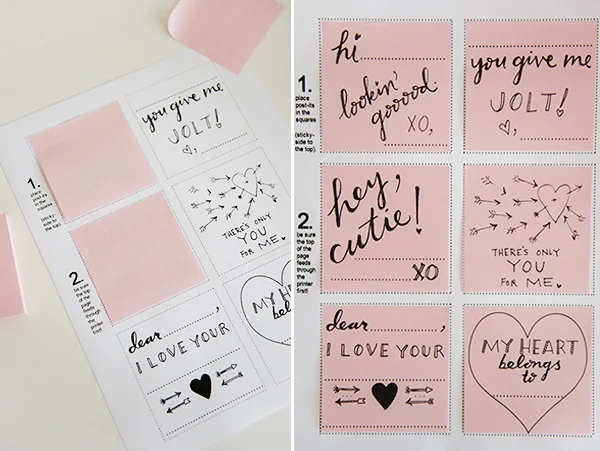 you give me
JOLT!
,
1.
place
post-its
in the
squares
(sticky-
side to
the top).
THERE'S ONLY
YOU
FOR ME.
2.
be sure
the top
of the
page
feeds
through
the
printer
first!
dear ,
I LOVE YOUR
MY HEAR
belon
to
hi
lookin'
gooood.
XO,
you give me
JOLT!
,
1.
place
post-its
in the
squares
(sticky-
side to
the top).
hey,
cutie!
XO
THERE'S ONLY
YOU
FOR ME.
2.
be sure
the top
of the
page
feeds
through
the
printer
first!
dear ,
I LOVE YOUR
MY HEART
belongs
to